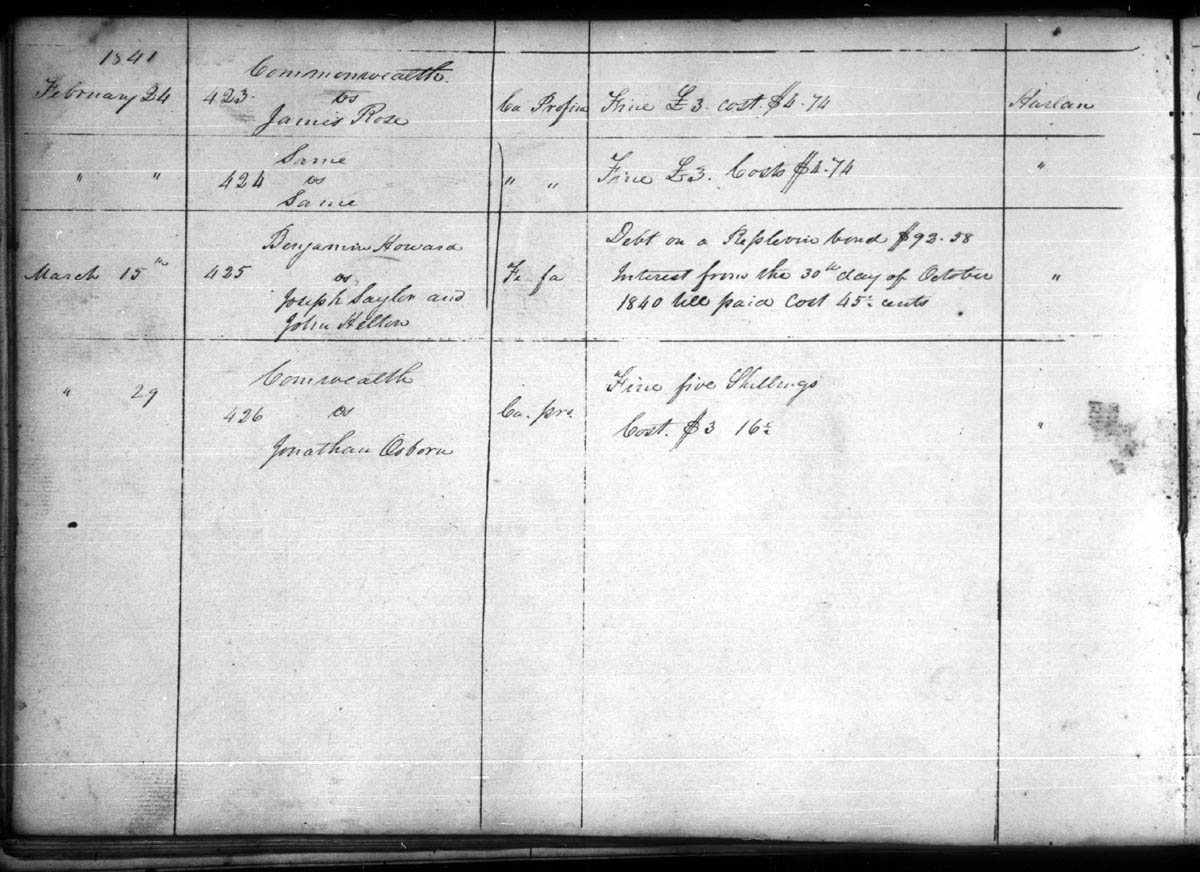 1841
Commonwealth
February 24 423. vs Ca Profine Fine £3. cost. $4.74 Harlan
James Rose
Same
" " 424 vs " " Fine £3. Costs $4.74 "
Same
Benjamin Howard Debt on a Replevin bond $92.58
March 15th 425 vs Fi fa Interest from the 30th day of October "
Joseph Saylor and 1840 till paid Cost 45c cents
John Helton
Comwealth Fine five Shillings
" 29 426 vs Ca. pro. Cost. $3 16c "
Jonathan Osborn